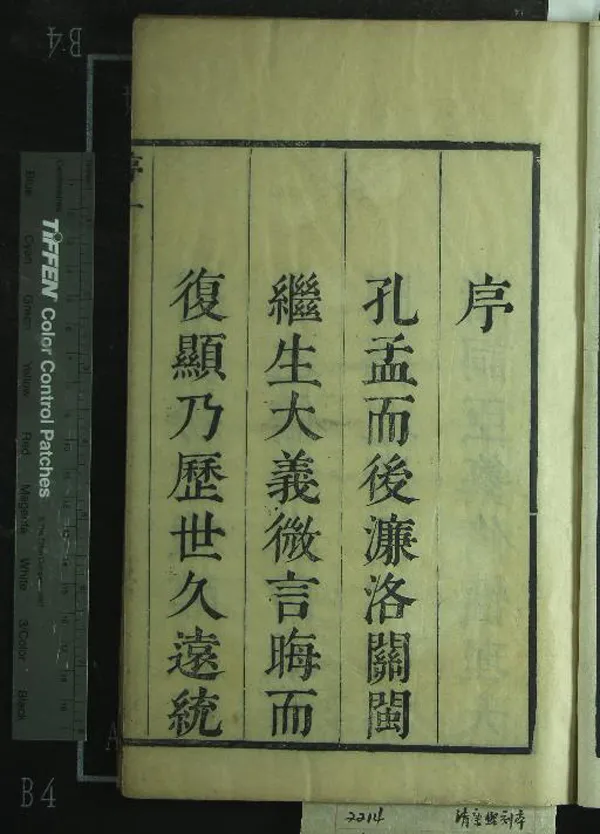 序
孔孟而後濂洛關閩
繼生大義微言晦而
復顯乃歷世久遠統
序一
TIFFEN Color Control Patches
Blue Cyan Green Yellow Red Magenta White 3/Color Black
B4
B4
2214